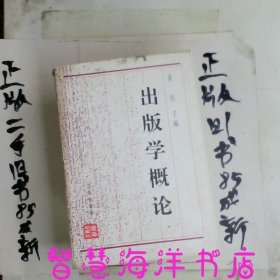 正版二手旧书85成新
出版学概论
主编
正版旧书85成新
智慧海洋书店